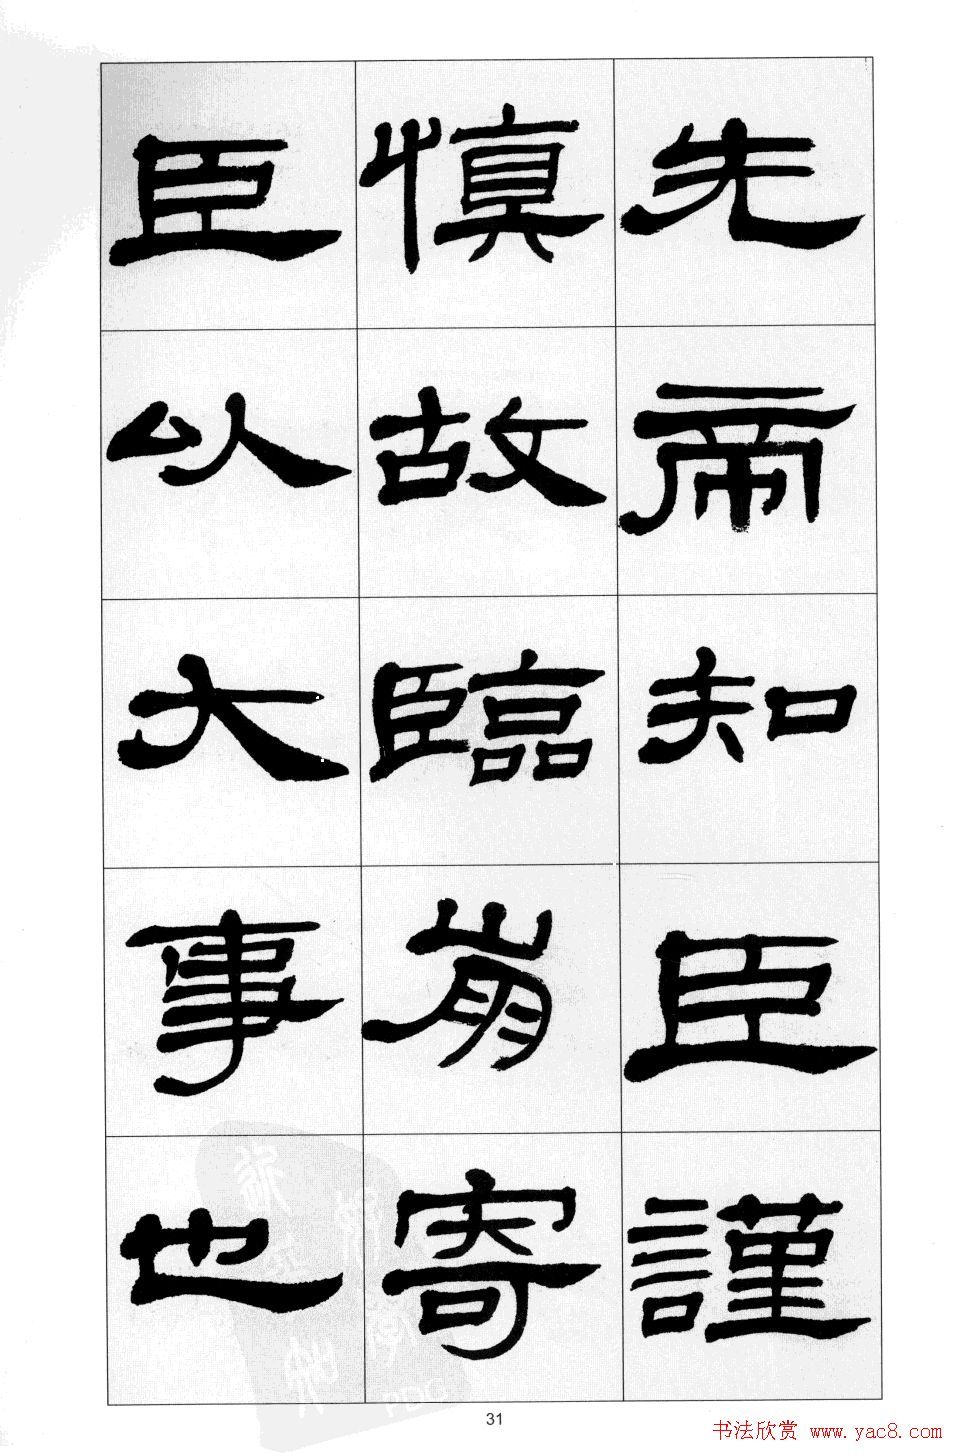 先帝知臣謹
慎故臨崩寄
臣以大事也
31
书法欣赏 www.yac8.com